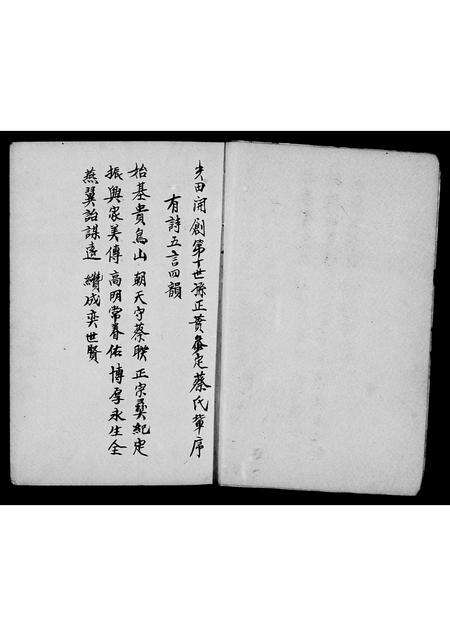 半田開創第十世孫正黃鱼定蔡氏輩序
有詩五言四韻
始基貴烏山 朝天守蔡睽 正宗彝紀定
振興家美傳 高明常春佑 博厚永生全
燕翼詒謀遠 纘成奕世賢